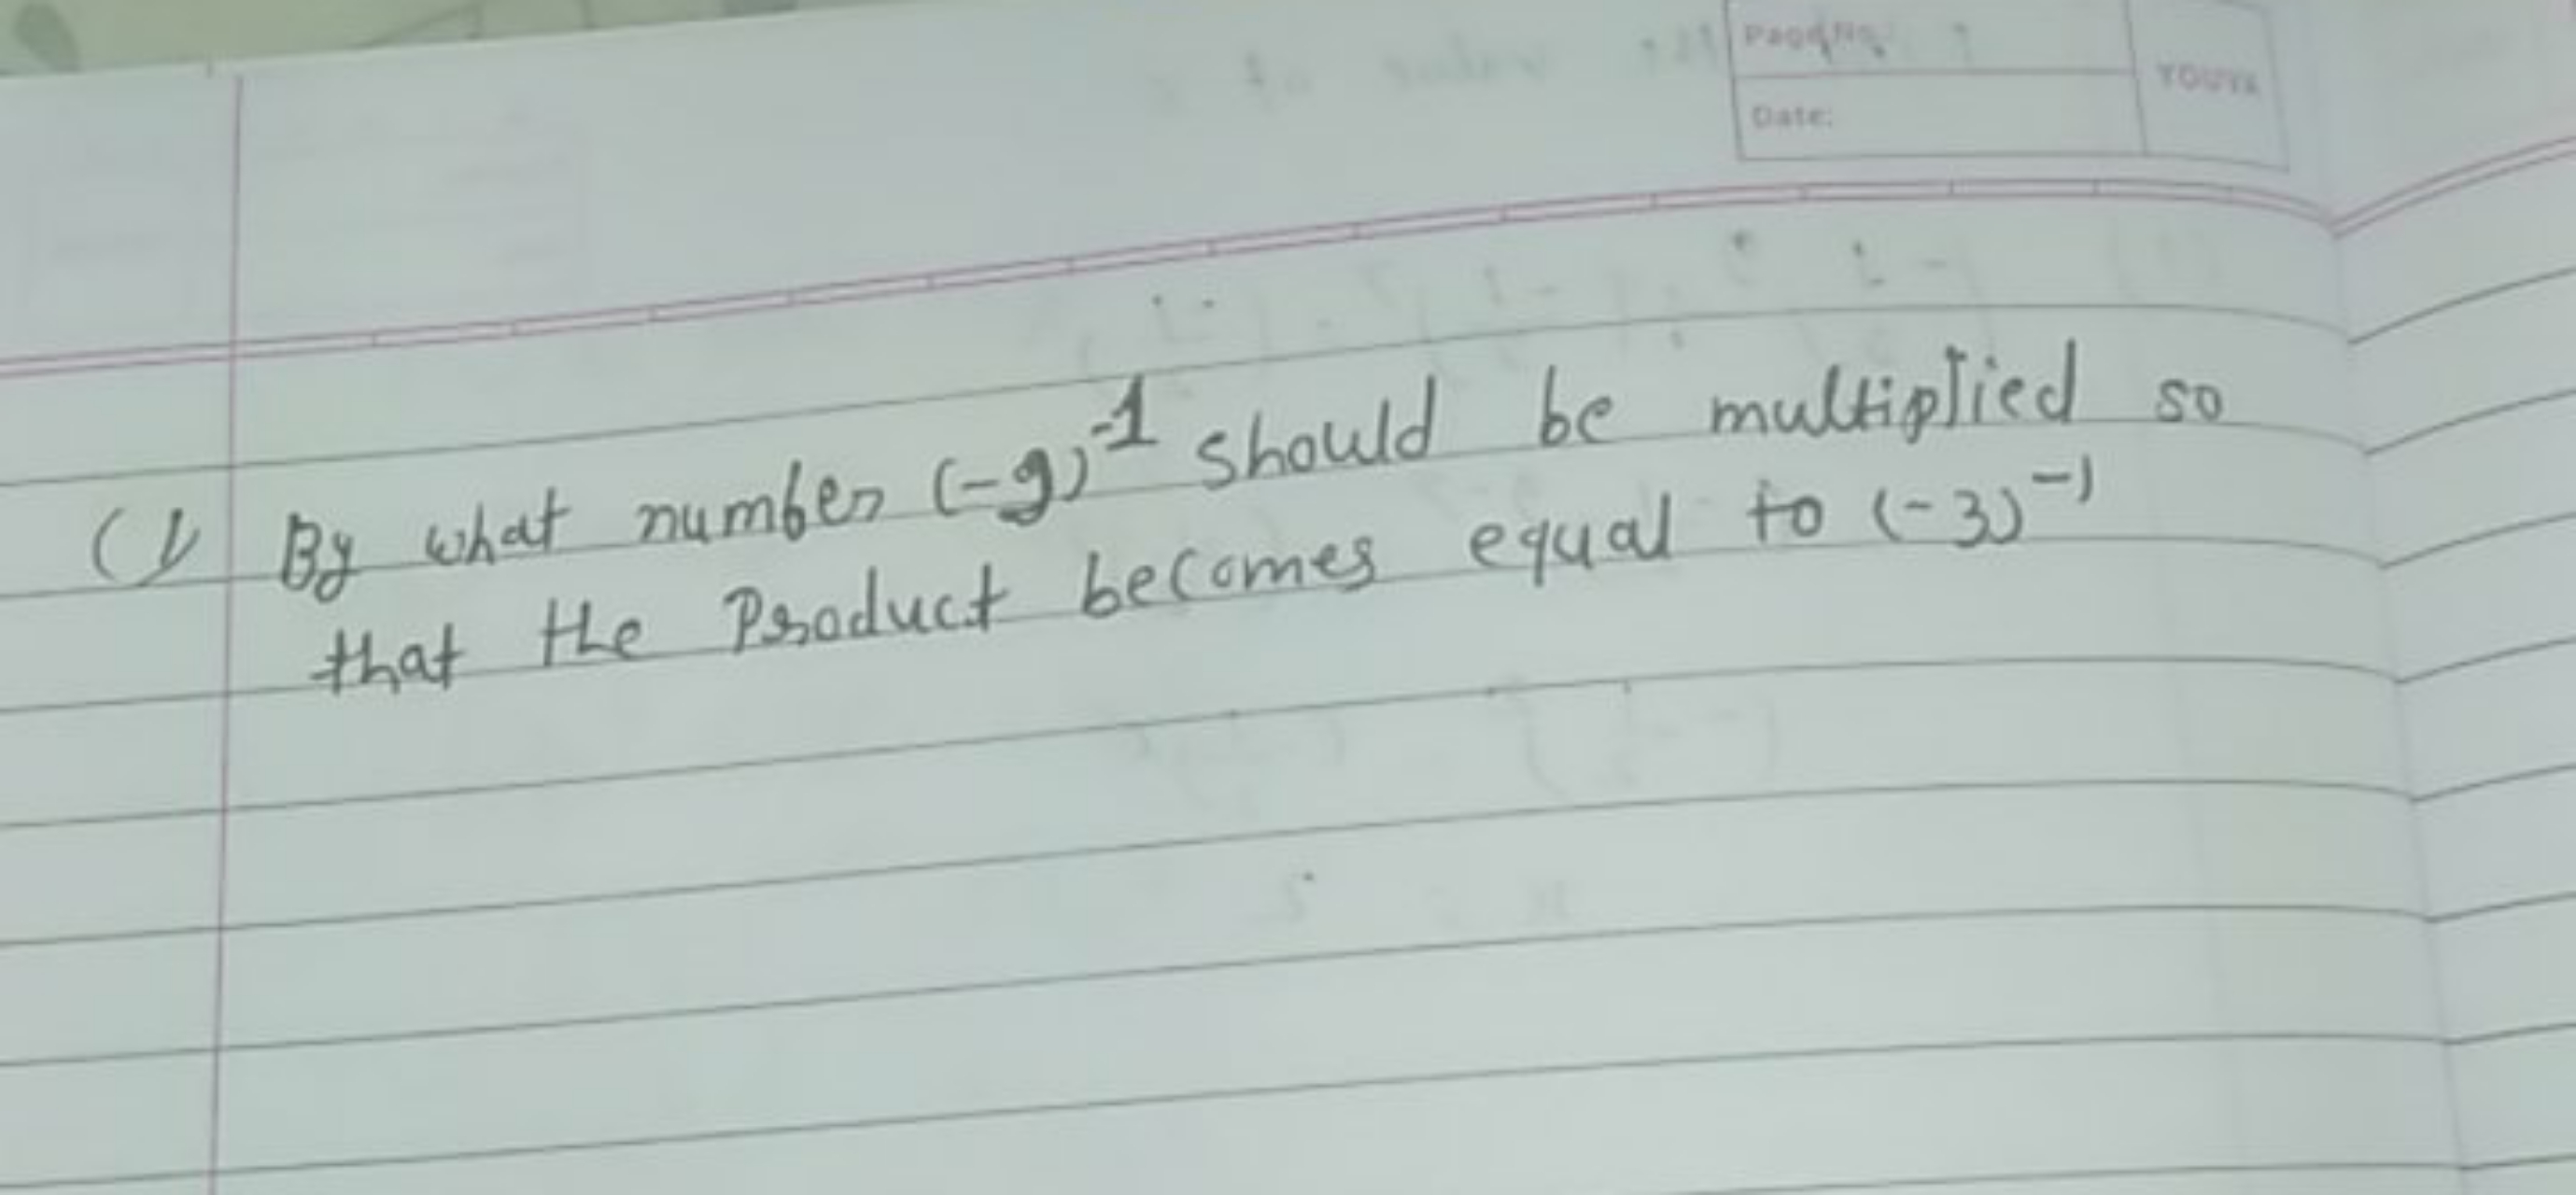 Page No.
Date:
YOUVA
(1) By what number (-9)⁻¹ should be multiplied so
that the Product becomes equal to (-3)⁻¹